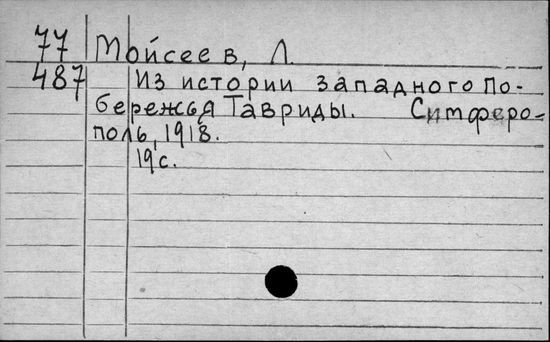 77 Мойсеев, Л.
487 Из истории западного по-
бережья Тавриды. Симферо-
поль, 1918.
19с.